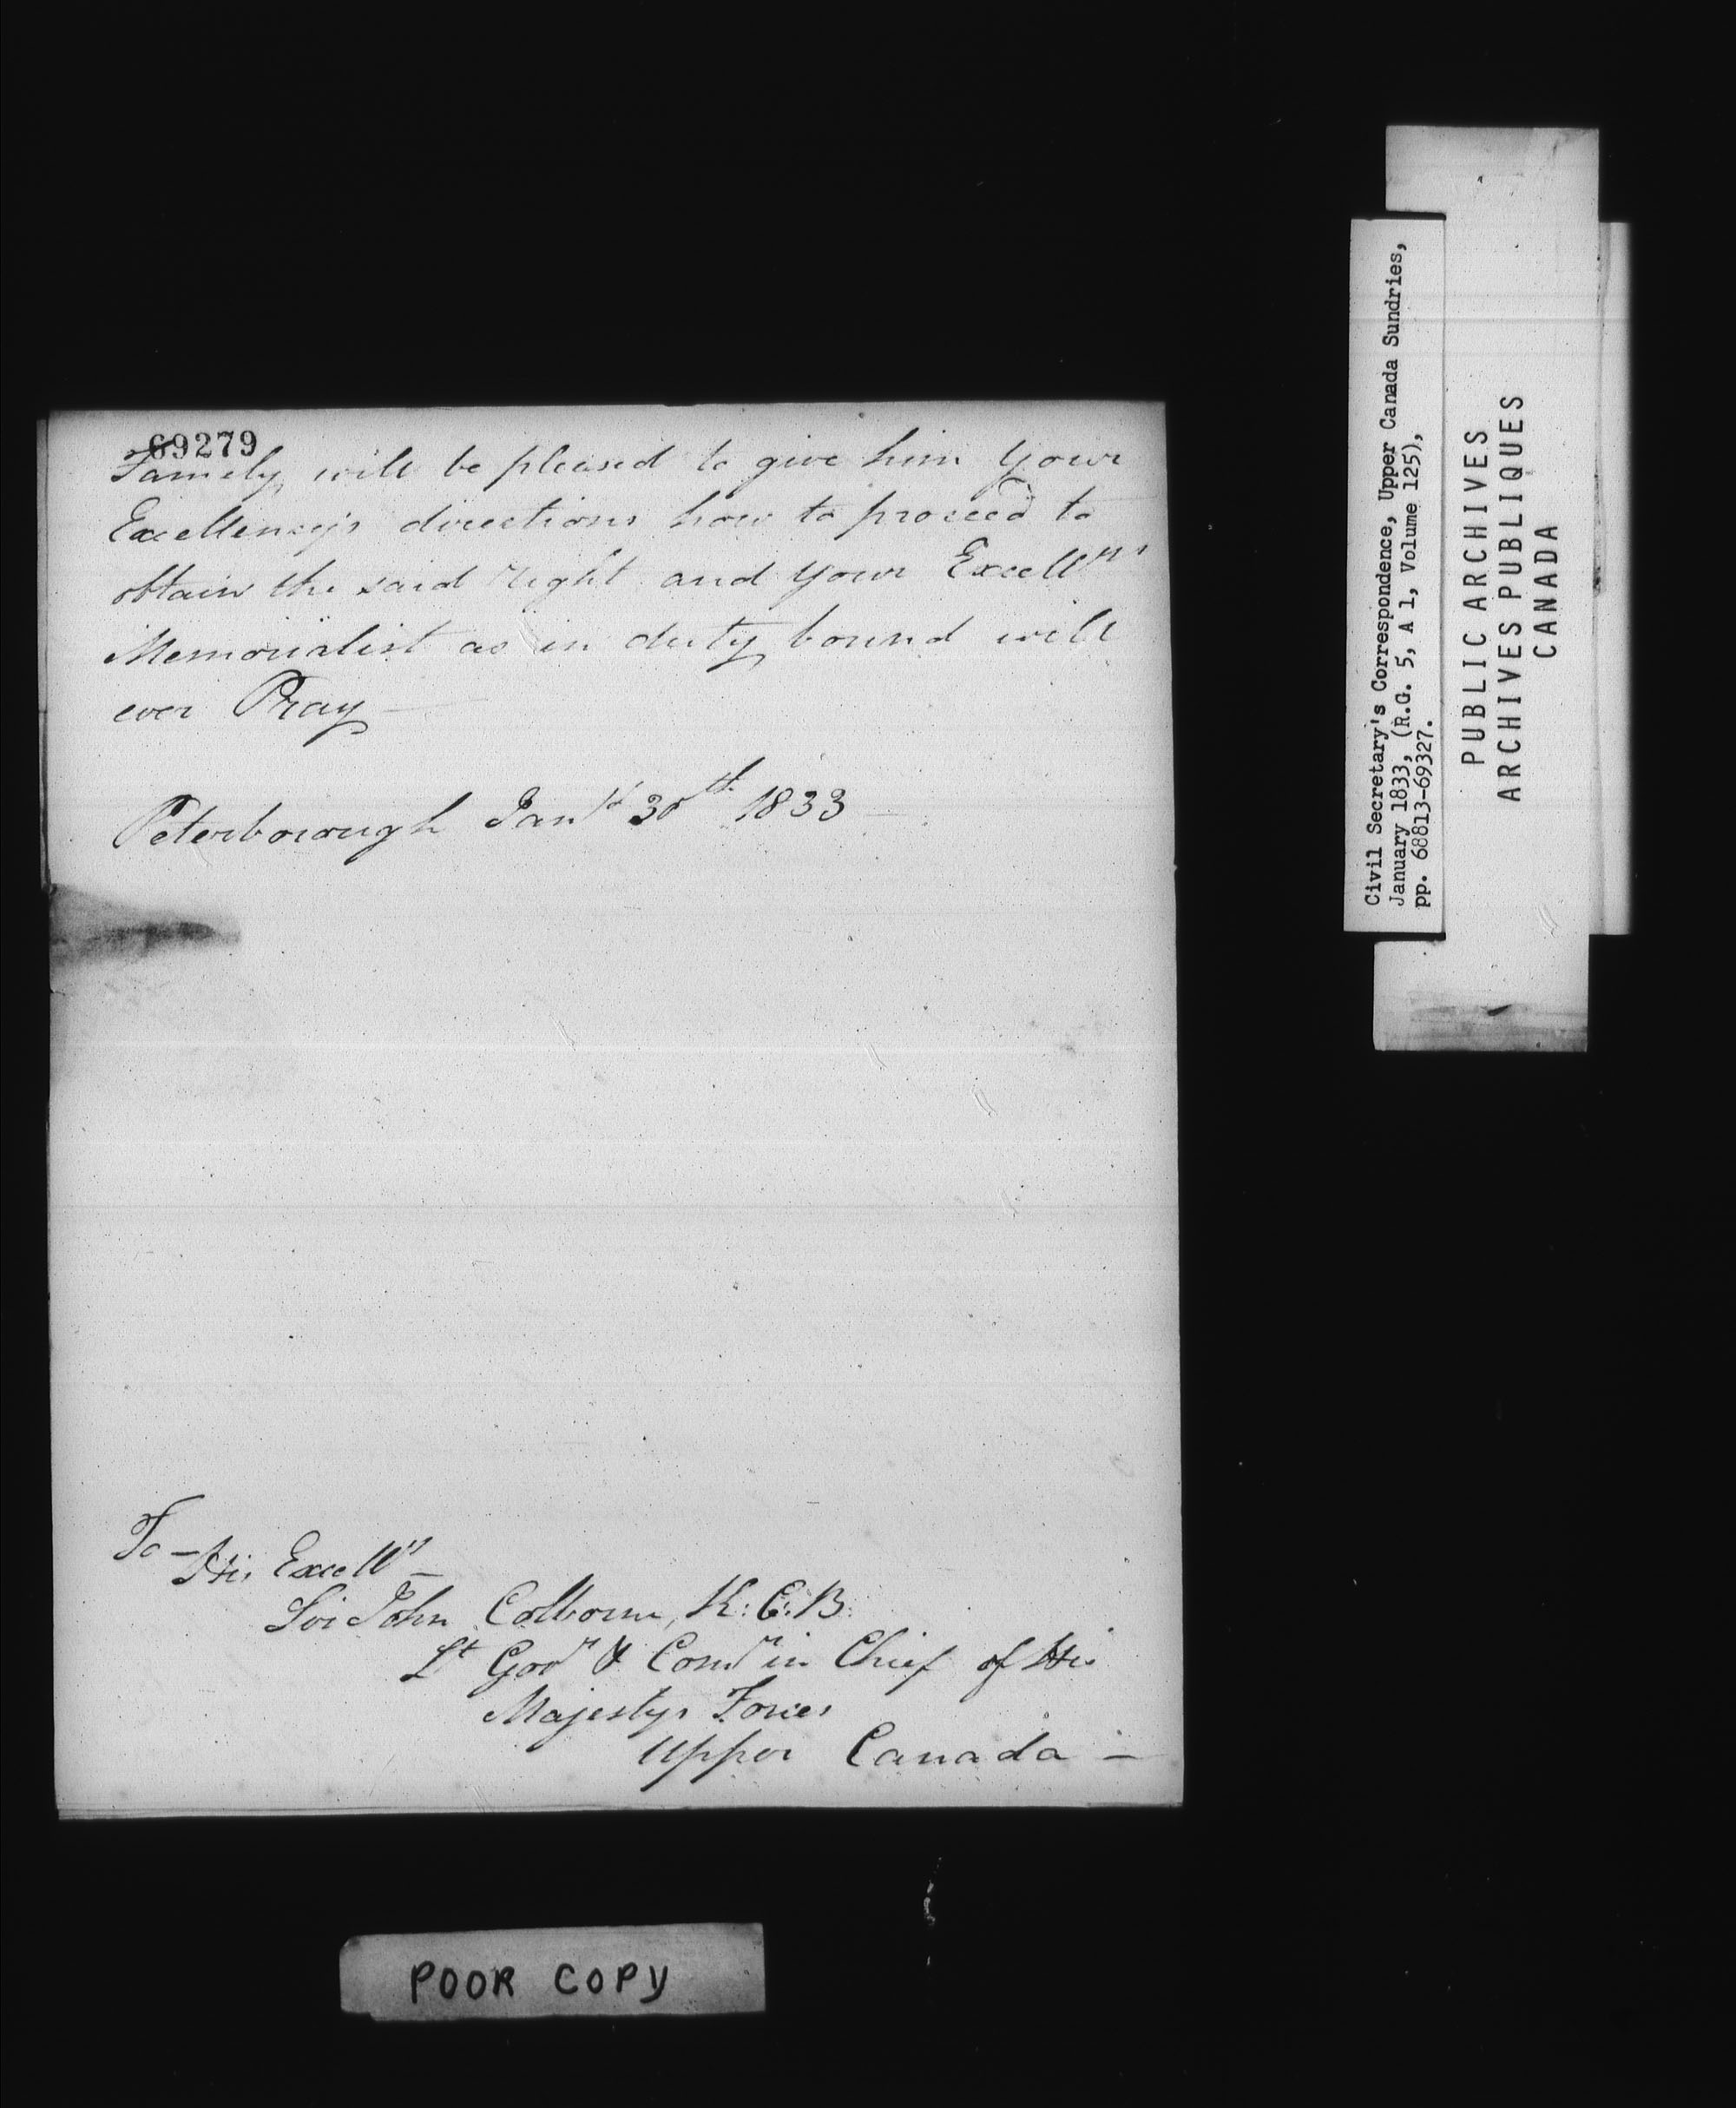 69279
Famely will be pleased to give him Your
Excellency's directions how to proceed to
obtain the said right and Your Excellys
Memorialist as in duty bound will
ever Pray —
Peterborough Jany 30th 1833 —
To —
His Excelly —
Sir John Colborne, K: C: B:
Lt Govr & Comr in Chief of His
Majestys Forces
Upper Canada —
POOR COPY
Civil Secretary's Correspondence, Upper Canada Sundries,
January 1833, (R.G. 5, A 1, Volume 125),
pp. 68813-69327.
PUBLIC ARCHIVES
ARCHIVES PUBLIQUES
CANADA